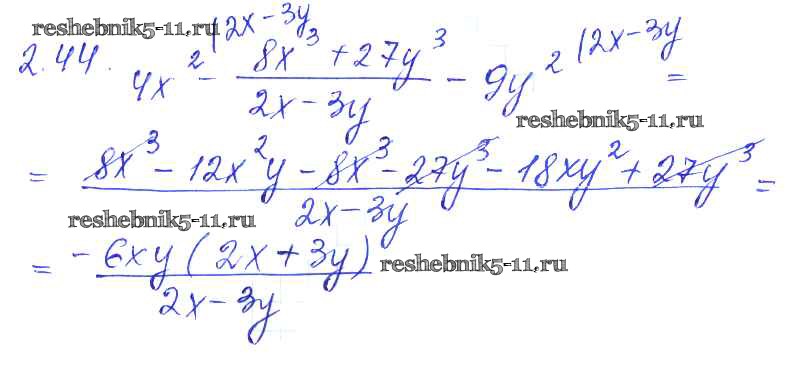 reshebnik5-11.ru
2.44. 4x² |2x-3y - (8x³ + 27y³)/(2x - 3y) - 9y² |2x-3y =
reshebnik5-11.ru
= (8x³ - 12x²y - 8x³ - 27y³ - 18xy² + 27y³)/(2x - 3y) =
reshebnik5-11.ru
= -6xy(2x + 3y)/(2x - 3y)
reshebnik5-11.ru